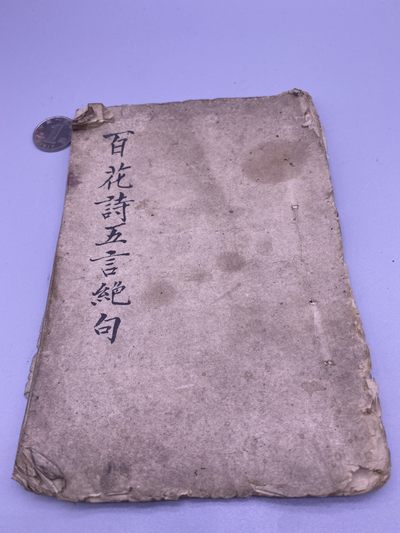 百花詩五言絕句